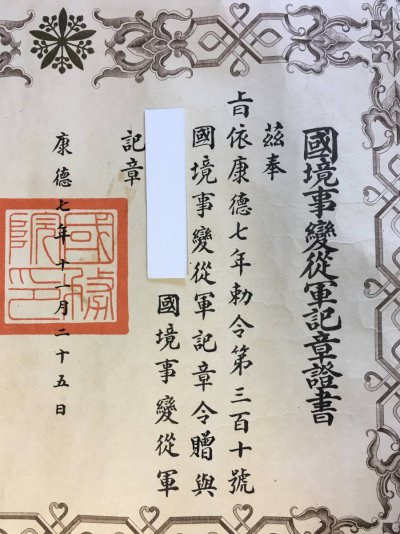 國境事變從軍記章證書
茲奉
㫖依康德七年勅令第三百十號
國境事變從軍記章令贈與
國境事變從軍
記章
康德七年十一月二十五日
國務院印